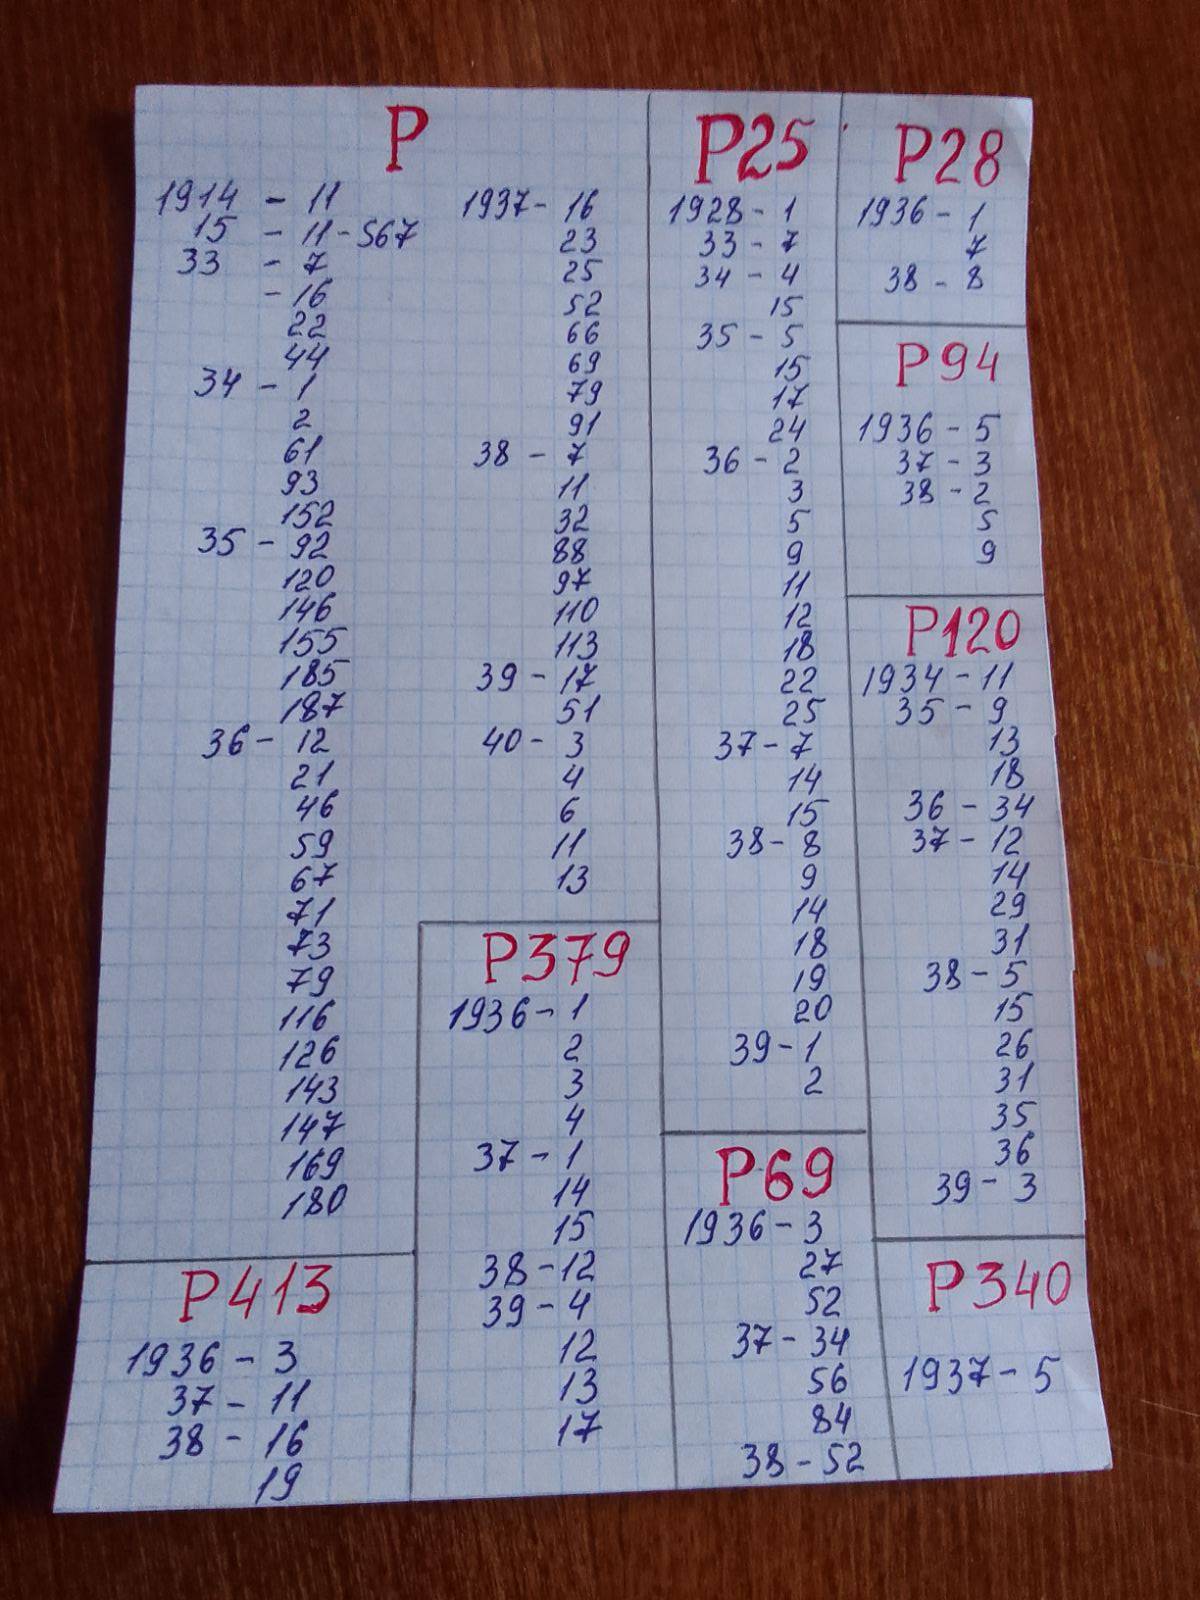 P
1914 - 11
15 - 11 - 567
33 - 7
- 16
22
44
34 - 1
2
61
93
152
35 - 92
120
146
155
185
187
36 - 12
21
46
59
67
71
73
79
116
126
143
147
169
180
1937 - 16
23
25
52
66
69
79
91
38 - 7
11
32
88
97
110
113
39 - 17
51
40 - 3
4
6
11
13
P413
1936 - 3
37 - 11
38 - 16
19
P379
1936 - 1
2
3
4
37 - 1
14
15
38 - 12
39 - 4
12
13
17
P25
1928 - 1
33 - 7
34 - 4
15
35 - 5
15
17
24
36 - 2
3
5
9
11
12
18
22
25
37 - 7
14
15
38 - 8
9
14
18
19
20
39 - 1
2
P69
1936 - 3
27
52
37 - 34
56
84
38 - 52
P28
1936 - 1
7
38 - 8
P94
1936 - 5
37 - 3
38 - 2
5
9
P120
1934 - 11
35 - 9
13
18
36 - 34
37 - 12
14
29
31
38 - 5
15
26
31
35
36
39 - 3
P340
1937 - 5